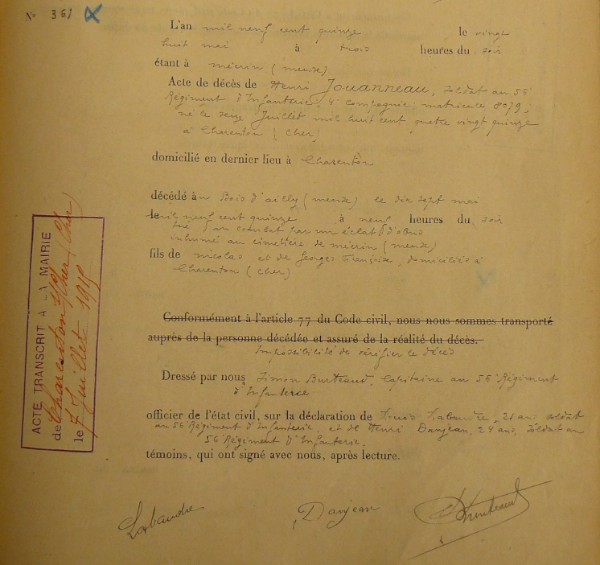 N° 361
L'an mil neuf cent quinze le vingt
huit mai à trois heures du soir
étant à mécrin (meuse)
Acte de décès de Henri Jouanneau, soldat au 56e
Régiment d'Infanterie, compagnie, matricule 8079,
né le seize Juillet mil huit cent quatre vingt quinze
à Charenton (Cher)
domicilié en dernier lieu à Charenton
décédé au Bois d'ailly (meuse) le dix sept mai
le mil neuf cent quinze à neuf heures du soir
tué au combat par un éclat d'obus
inhumé au cimetière de mécrin (meuse)
fils de nicolas et de Georges Françoise, domiciliés à
Charenton (Cher)
Conformément à l'article 77 du Code civil, nous nous sommes transporté
auprès de la personne décédée et assuré de la réalité du décès.
Impossibilité de vérifier le décès
Dressé par nous Simon Burteaud, Capitaine au 56e Régiment
d'Infanterie
officier de l'état civil, sur la déclaration de Labaudre, ans soldat
au 56e Régiment d'Infanterie, et de Henri Danjean, 24 ans, soldat au
56e Régiment d'Infanterie,
témoins, qui ont signé avec nous, après lecture.
Labaudre Danjean
ACTE TRANSCRIT A LA MAIRIE
de Charenton (Cher)
le 7 Juillet 1915